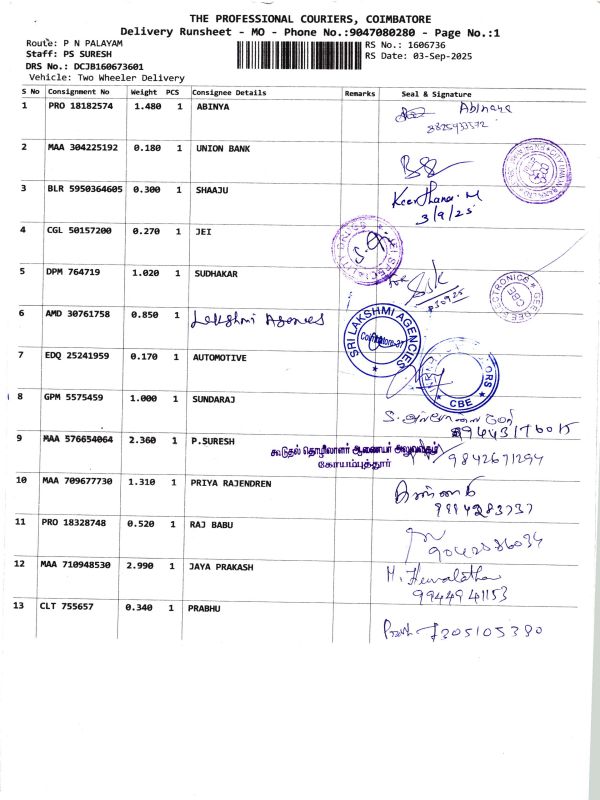 THE PROFESSIONAL COURIERS, COIMBATORE
Delivery Runsheet - MO - Phone No.:9047080280 - Page No.:1
Route: P N PALAYAM RS No.: 1606736
Staff: PS SURESH RS Date: 03-Sep-2025
DRS No.: DCJB160673601
Vehicle: Two Wheeler Delivery
S No Consignment No Weight PCS Consignee Details Remarks Seal & Signature
1 PRO 18182574 1.480 1 ABINYA Abinaya
2 MAA 304225192 0.180 1 UNION BANK
3 BLR 5950364605 0.300 1 SHAAJU Keerthana.M
3/9/25
4 CGL 50157200 0.270 1 JEI
5 DPM 764719 1.020 1 SUDHAKAR for
GEE DEE ELECTRONICS CBE
6 AMD 30761758 0.850 1 Lakshmi Agencies
SRI LAKSHMI AGENCIES Coimbatore-37
7 EDQ 25241959 0.170 1 AUTOMOTIVE
CBE
8 GPM 5575459 1.000 1 SUNDARAJ
9 MAA 576654064 2.360 1 P.SURESH
கூடுதல் தொழிலாளர் ஆணையர் அலுவலகம்
கோயம்புத்தூர்
9842671294
10 MAA 709677730 1.310 1 PRIYA RAJENDREN
9994283737
11 PRO 18328748 0.520 1 RAJ BABU
9042086034
12 MAA 710948530 2.990 1 JAYA PRAKASH M. Hemalatha
9944941153
13 CLT 755657 0.340 1 PRABHU
7305105380